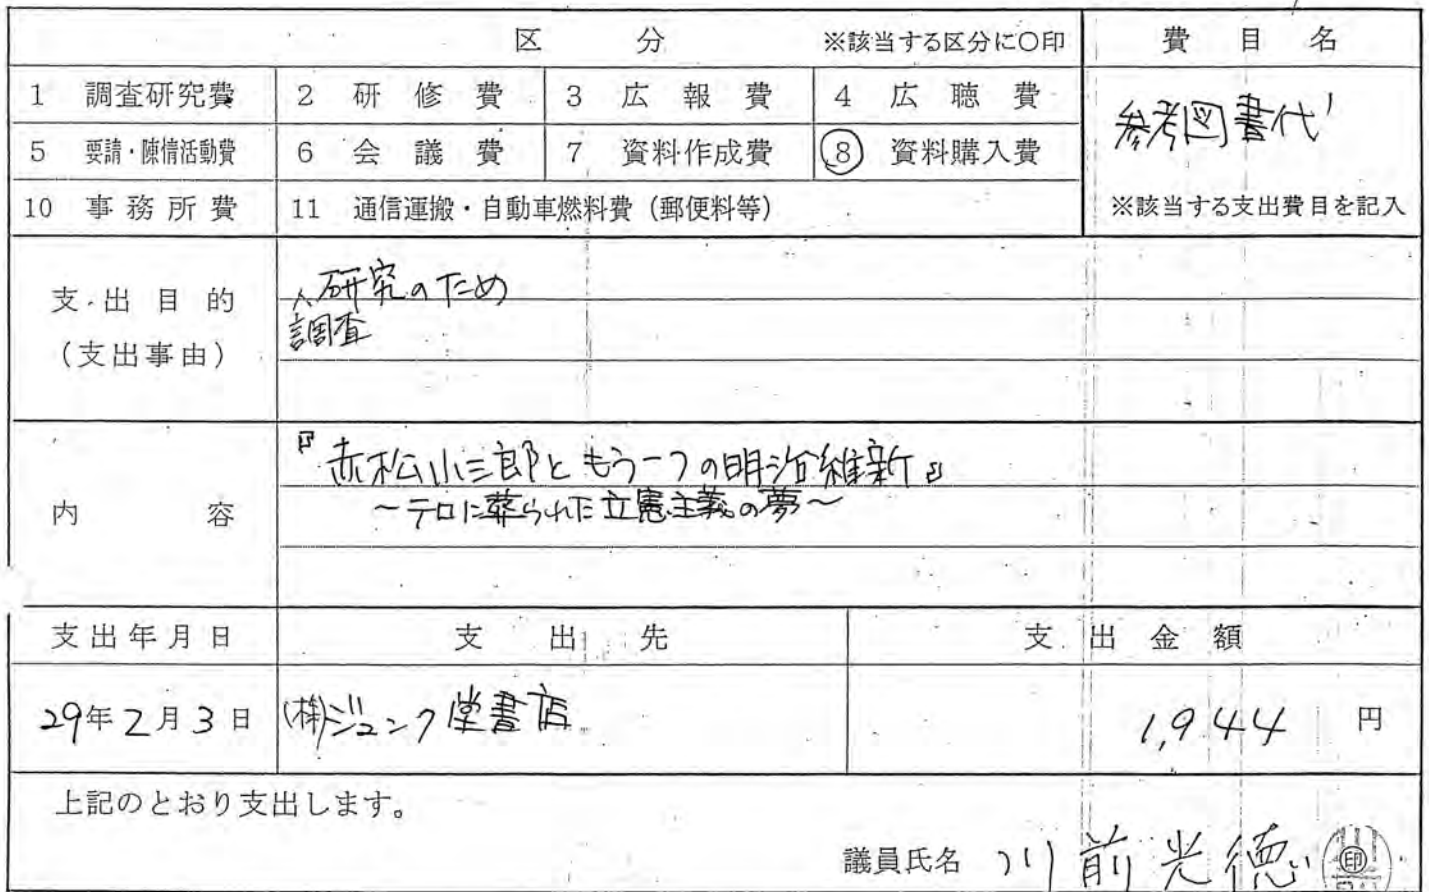 区 分 ※該当する区分に○印 費目名
1 調査研究費 2 研修費 3 広報費 4 広聴費
参考図書代
5 要請・陳情活動費 6 会議費 7 資料作成費 8 資料購入費
10 事務所費 11 通信運搬・自動車燃料費（郵便料等） ※該当する支出費目を記入
支出目的
（支出事由）
研究のため
調査
内容
『赤松小三郎ともう一つの明治維新』
～テロに葬られた立憲主義の夢～
支出年月日 支出先 支出金額
29年2月3日 (株)ジュンク堂書店 1,944円
上記のとおり支出します。
議員氏名 川前光徳 印